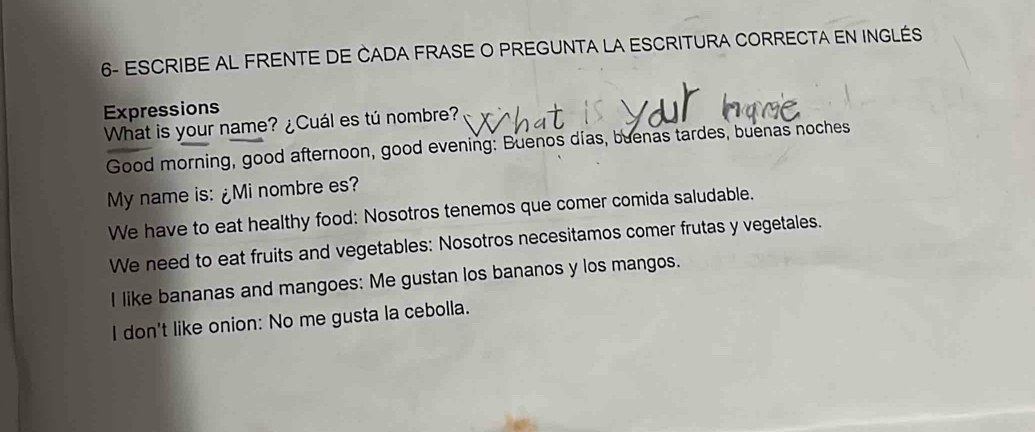 6- ESCRIBE AL FRENTE DE CADA FRASE O PREGUNTA LA ESCRITURA CORRECTA EN INGLÉS
Expressions
What is your name? ¿Cuál es tú nombre? What is your name
Good morning, good afternoon, good evening: Buenos días, buenas tardes, buenas noches
My name is: ¿Mi nombre es?
We have to eat healthy food: Nosotros tenemos que comer comida saludable.
We need to eat fruits and vegetables: Nosotros necesitamos comer frutas y vegetales.
I like bananas and mangoes: Me gustan los bananos y los mangos.
I don't like onion: No me gusta la cebolla.